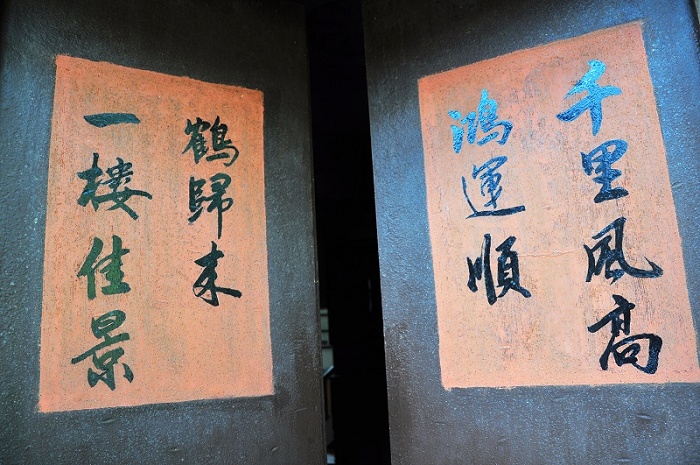 千里風高
鴻運順
鶴歸来
一樓佳景